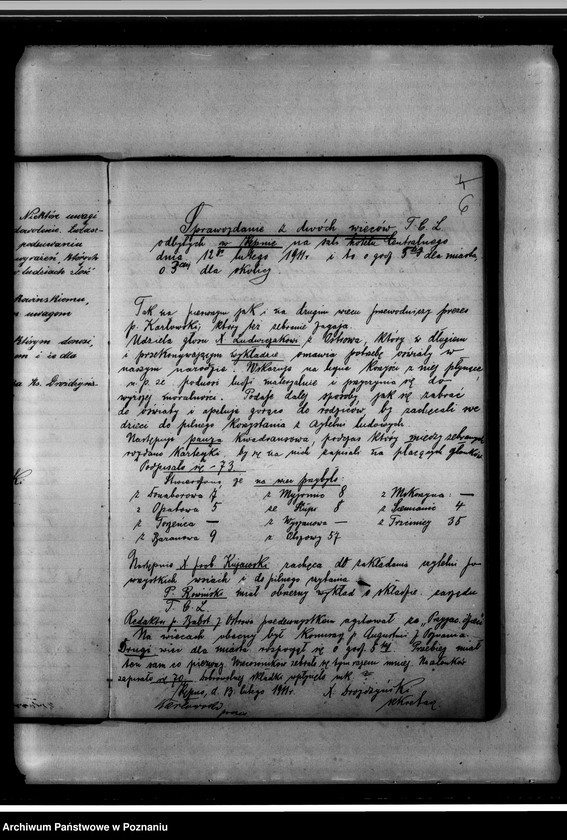 Niektóre uwagi
ludziach złość
uwagom
i że dla
4
6
Sprawozdanie z dwóch wieców T.C.L
odbytych w Kępnie na sali hotelu Centralnego
dnia 12 lutego 1911r. i to o godz 5 dla miasta,
o 3 dla okolicy.
Tak na pierwszym jak i na drugim wiecu przewodniczy prezes
p. Karłowski, który też zebranie zagaja.
Udziela głosu X. Ludwiczakowi z Ostrowa, który w długiem
i przekonywającym wykładzie omawia potrzebę oświaty w
naszym narodzie. Wskazuje na liczne korzyści z niej płynące
n.p. że podnosi ludzi materjalnie i przyczynia się do
wyższej moralności. Podaje dalej sposoby, jak się zabrać
do oświaty i apeluje gorąco do rodziców, by zachęcali swe
dzieci do pilnego korzystania z czytelni ludowych.
Następuje pauza kwadransowa, podczas której między zebranych
rozdano karteczki, by się na nich zapisali na płacących członków.
Podpisało się - 73.
Stwierdzono, że na wiec przybyło:
z Donaborowa 7 z Myjomic 8 z Mikorzyna: —
z Opatowa 5 ze Słupi 8 z Siemianic 4
z Torzeńca — z Wyszanowa — z Trzcinicy 35
z Baranowa 9 z Olszowy 57
Następnie X. prob. Kujawski zachęca do zakładania czytelni po
wszystkich wsiach i do pilnego czytania.
P. Rowiński miał obszerny wykład o składzie zarządu
T.C.L
Redaktor p. z Ostrowa przedewszystkiem agitował za
Na wiecach obecny był Komisarz p. Augustin z Poznania.
Drugi wiec dla miasta rozpoczął się o godz. 5. Przebieg miał
ten sam co pierwszy. Wiecowników zebrało się tym razem mniej. Na członków
zapisało się 70. Dobrowolnej składki wpłynęło mk
Kępno, d. 13. lutego 1911r. X. Drożdżyński
Karłowski sekretarz
prezes
Archiwum Państwowe w Poznaniu